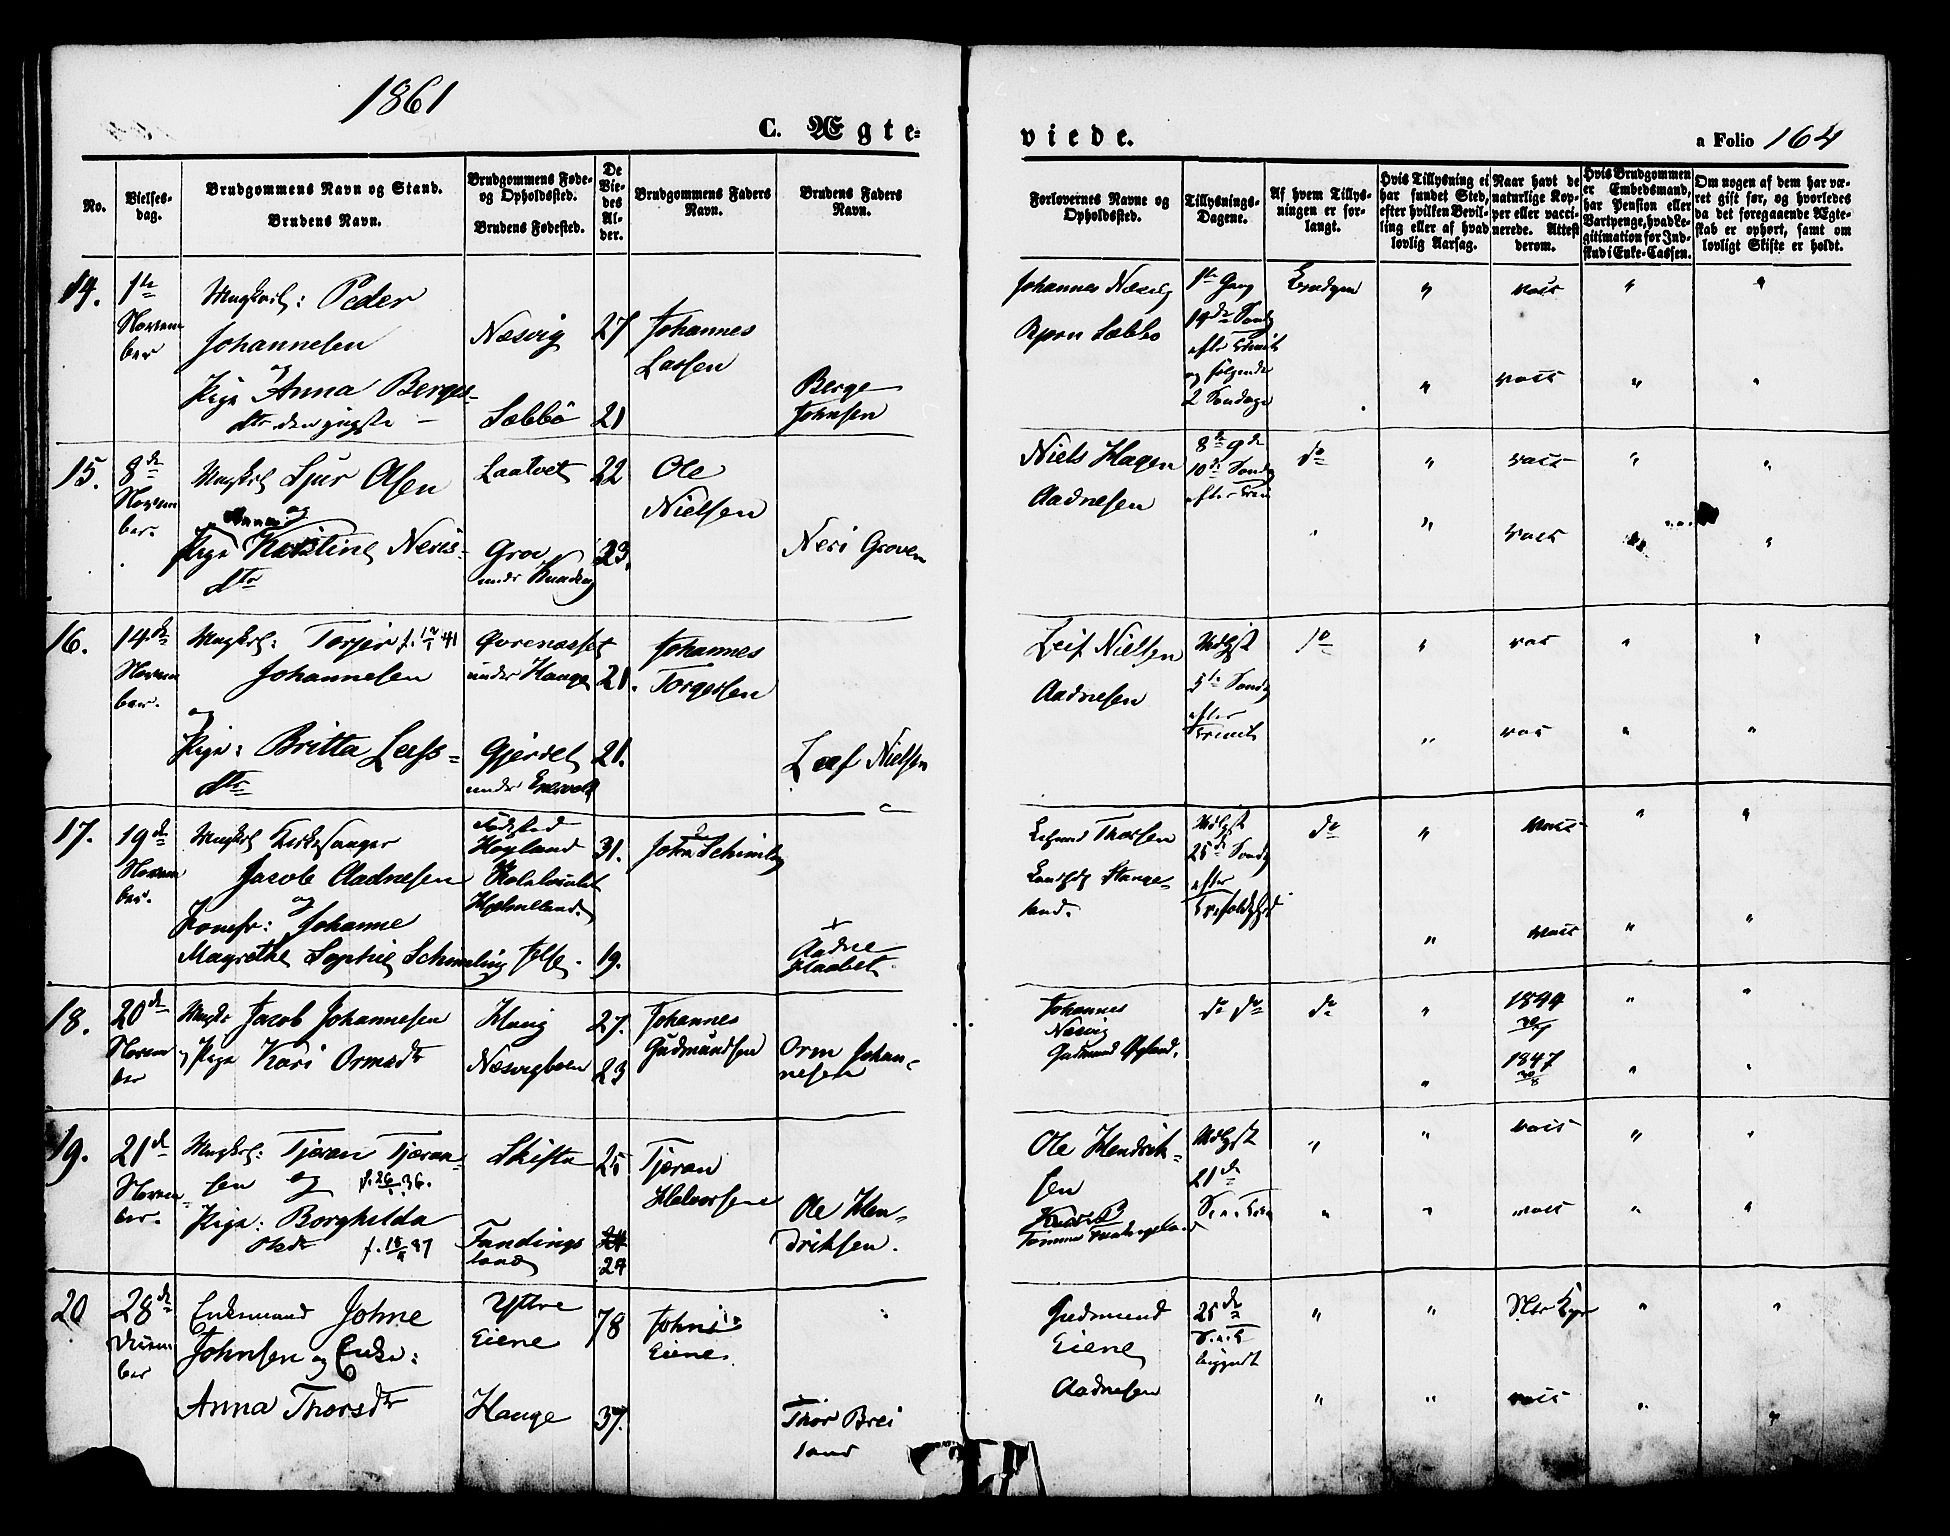 1861
C. Ægte-
viede.
a Folio 164
No.
Vielses-
dag.
Brudgommens Navn og Stand.
Brudens Navn.
Brudgommens Føde-
og Opholdssted.
Brudens Fødested.
De
Vie-
des
Al-
der.
Brudgommens Faders
Navn.
Brudens Faders
Navn.
Forlovernes Navne og
Opholdssted.
Tillysnings-
Dagene.
Af hvem Tillys-
ningen er for-
langt.
Hvis Tillysning ei
har fundet Sted,
efter hvilken Bevil-
ling eller af hvad
lovlig Aarsag.
Naar havt de
naturlige Kop-
per eller vacci-
nerede. Attest
derom.
Hvis Brudgommen
er Embedsmand,
har Pension eller
Vartpenge, hvad Le-
gitimation for Ind-
skud i Enke-Cassen.
Om nogen af dem har væ-
ret gift før, og hvorledes
da det foregaaende Ægte-
skab er ophørt, samt om
lovligt Skifte er holdt.
14.
1ste
Novem
ber
Ungkarl: Peder
Johannesen
og
Pige Anna Berges-
dtr. den yngste
Næsvig
Sæbbö
27
21
Johannes
Larsen
Berge
Johnsen
Johannes Næsvig
Bjørn Sæbbö
1ste Gang
19de Sönd
efter Trinit
og følgende
2 Söndage
Brudgom
" vacc " "
" vacc " "
15.
8de
Novem
ber.
Ungkarl Sjur Olsen
og
Anna
Pige Kristine Neris-
dtr
Laatvet
Grov
under
22
23.
Ole
Nielsen
Neri Groven
Niels Hagen
Aadnesen
8de 9de
10de Sönd
efter Trin
do
" vacc " "
" vacc "
16.
14de
Novem
ber.
Ungkrl: Torjer f. 41
Johannesen
og
Pige: Britta Leifs-
dtr
Øvrenæsset
under Hauge
Gjerdet
under
21.
21.
Johannes
Torgersen
Leif Nielsen
Leif Nielsen
Aadnesen
Udlyst
5te Sönd
efter
Trinit
do
" vac " "
" vac " "
17.
19de
Novem
ber.
Ungkrl Kirkesanger
Jacob Aadnesen
og
Jomfr: Johanne
Magrethe Sophie Schimling
Födested
Høgland
Hjelmeland.
Jelse.
31.
19.
John Schimling
Aadne
Thorsen
Stange-
land.
Udlyst
25de Sönd
efter
Trefoldighed
do
" vacc " "
" vacc " "
18.
20de
Novem
ber
Ungk: Jacob Johannesen
og Pige Kari Ormsdtr
Haug
Næsvigboen
27.
23
Johannes
Gudmundsen
Orm Johan-
nesen
Johannes
Næsvig
Gudmund
do do
do
" 1844 " "
" 1847 " "
19.
21de
Novem
ber.
Ungkrl: Tjeran Tjeran-
sen og f. 26 36.
Pige: Borghilda
Olsdtr f. 37
Skifta
Tandings
land
25
24
Tjeran
Halvorsen
Ole Hen-
driksen.
Ole Hendrik-
sen
Udlyst
21de
" " vacc " "
" " vacc " "
20
28de
Decem
ber
Enkemand Johne
Johnsen og Enke:
Anna Thorsdtr
Yttre
Eiene
Hauge
78
37.
Johns
Eiene.
Thor Brei
land
Gudmund
Eiene
Aadnesen
25de
" " " "
" " vacc " "